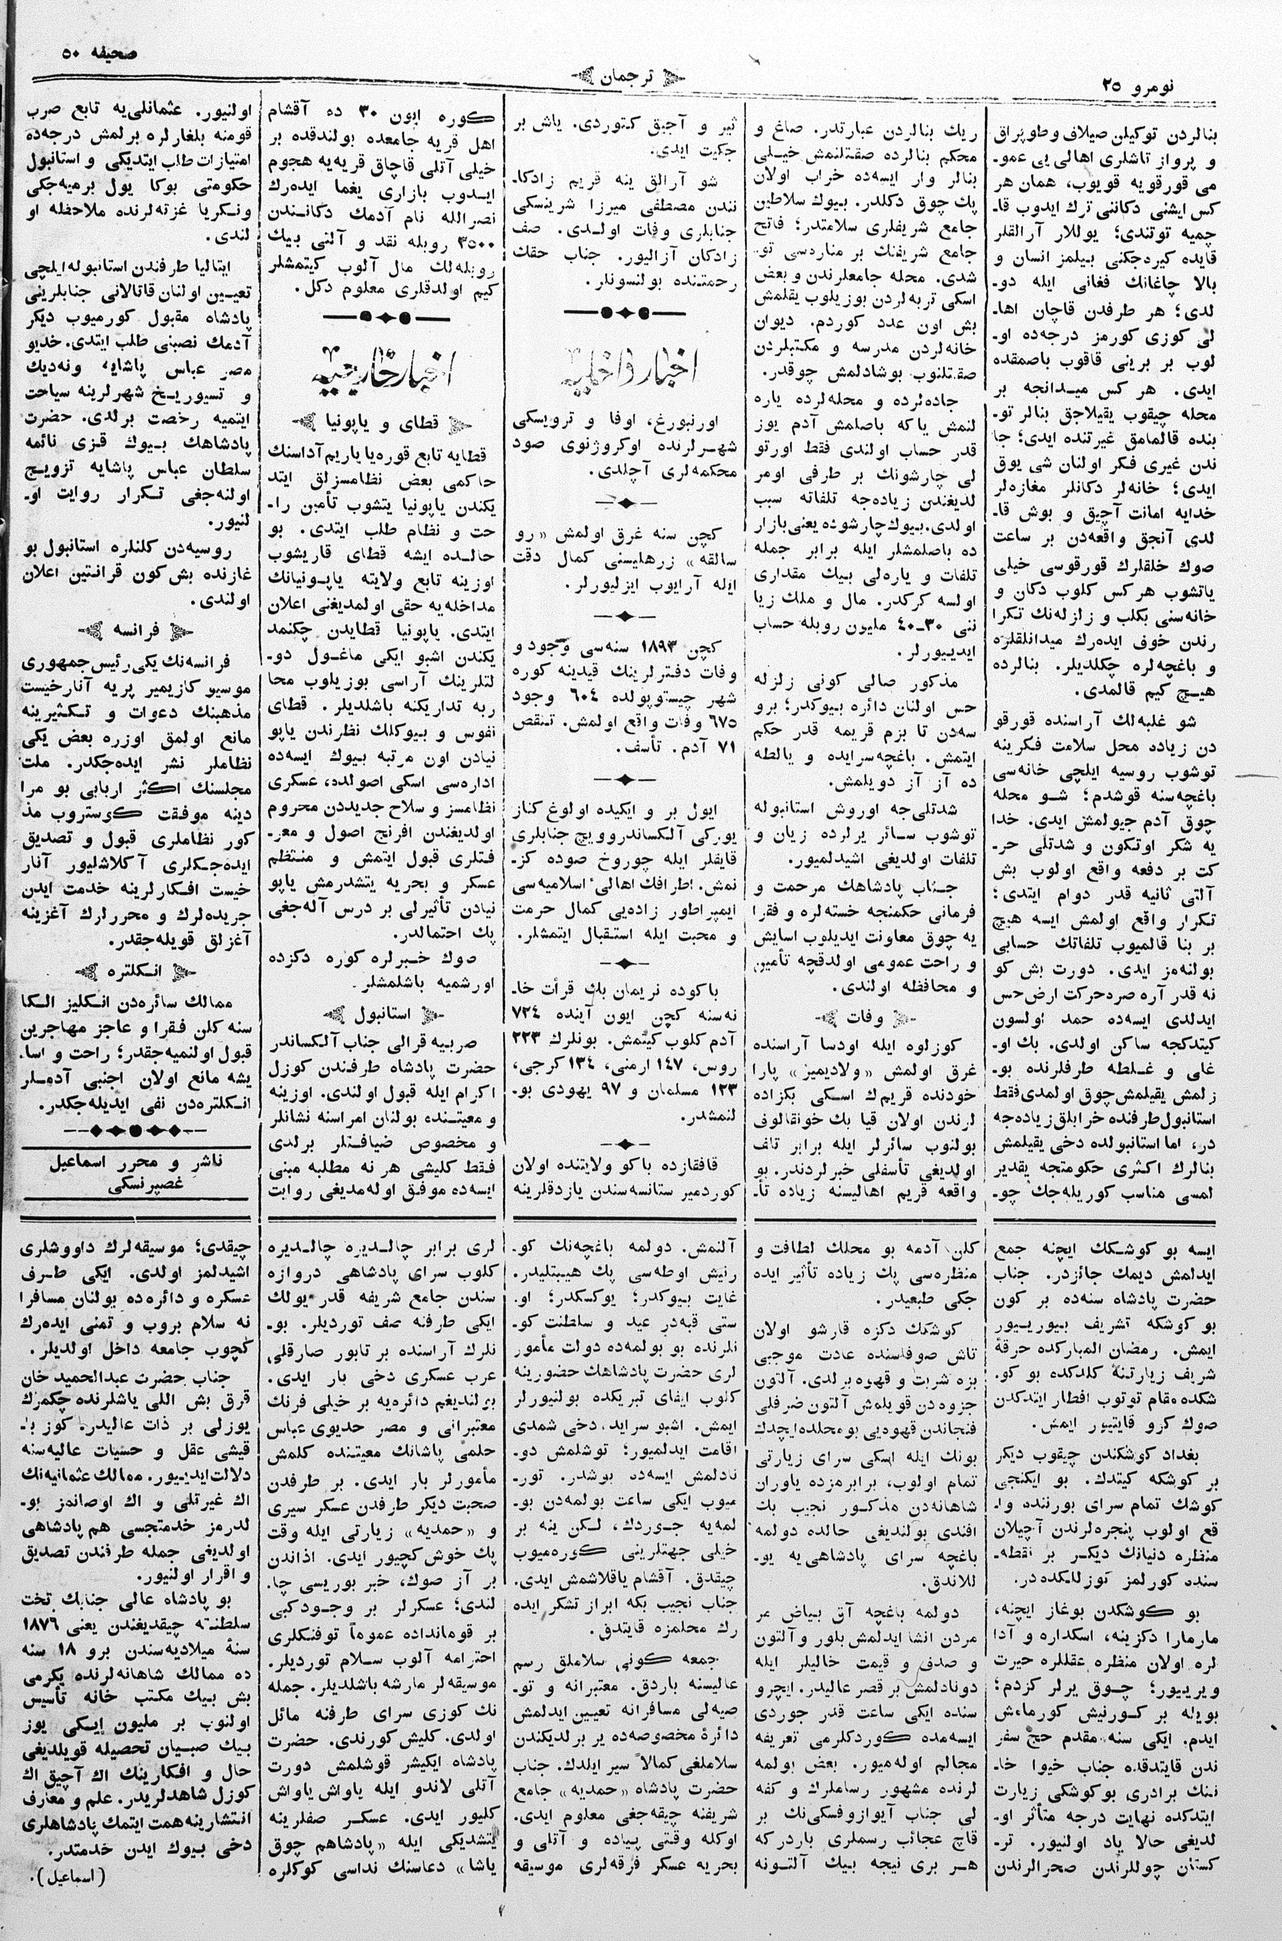 نومرو ٢٥
ترجمان
صحیفه ٥٠
بنالردن توکیلن صیلاف و طوپراق
و پرواز تاشلری اهالی یی عمو۔
می قورقویه قویوب، همان هر
کس ایشنی دکاننی ترك ایدوب قا۔
چمیه توتندی؛ یوللار آرالقلر
قایده کیره جکنی بیلمز انسان و
بالا چاغانك فغانی ایله دو۔
لدی؛ هر طرفدن قاچان اها۔
لی کوزی کورمز درجه ده او۔
لوب بر برینی قاقوب باصمقده
ایدی. هر کس میدانجه بر
محله چیقوب یقیلاجق بنالر تو۔
بنده قالمامق غیرتنده ایدی؛ جا
ندن غیری فکر اولنان شی یوق
ایدی؛ خانه لر دکانلر مغازه لر
خدایه امانت آچیق و بوش قا۔
لدی آنجق واقعه دن بر ساعت
صوك خلقلرك قورقوسی خیلی
یاتشوب هر کس کلوب دکان و
خانه سنی بکلب و زلزله نك تکرا
رندن خوف ایده رك میدانلقلره
و باغچه لره چکلدیلر. بنالرده
هیچ کیم قالمدی.
شو غلبه لك آراسنده قورقو
دن زیاده محل سلامت فکرینه
توشوب روسیه ایلچی خانه سی
باغچه سنه قوشدم؛ شو محله
چوق آدم جیولمش ایدی. خدا
یه شکر اوتکون و شدتلی حر۔
کت بر دفعه واقع اولوب بش
آلتی ثانیه قدر دوام ایتدی؛
تکرار واقع اولمش ایسه هیچ
بر بنا قالمیوب تلفاتك حسابی
بولنه مز ایدی. دورت بش کو
نه قدر آره صره حرکت ارض حس
ایدلدی ایسه ده حمد اولسون
کیتدکجه ساکن اولدی. بك او۔
غلی و غلطه طرفلرنده بو۔
زلمش یقیلمش چوق اولمدی فقط
استانبول طرفنده خرابلق زیاده جه
در، اما استانبولده دخی یقیلمش
بنالرك اکثری حکومتجه یقدیر
لمسی مناسب کوریله جك چو۔
ریك بنالردن عبارتدر. صاغ و
محکم بنالرده صقتلنمش خیلی
بنالر وار ایسه ده خراب اولان
پك چوق دکلدر. بیوك سلاطین
جامع شریفلری سلامتدر؛ فاتح
جامع شریفنك بر مناردسی تو۔
شدی. محله جامعلرندن و بعض
اسکی تربه لردن بوزیلوب یقلمش
بش اون عدد کوردم. دیوان
خانه لردن مدرسه و مکتبلردن
صقتلنوب بوشادلمش چوقدر.
جاده لرده و محله لرده یاره
لنمش یاکه باصلمش آدم یوز
قدر حساب اولندی فقط اورتو
لی چارشونك بر طرفی اومر
لدیغندن زیاده جه تلفاته سبب
اولدی. بیوك چارشوده یعنی بازار
ده باصلمشلر ایله برابر جمله
تلفات و یاره لی بیك مقداری
اولسه کرکدر. مال و ملك زیا
ننی ٣٠۔٤٠ ملیون روبله حساب
ایدییورلر.
مذکور صالی کونی زلزله
حس اولنان دائره بیوکدر؛ برو
سه دن تا بزم قریمه قدر حکم
ایتمش. باغچه سرایده و یالطه
ده آز آز دویلمش.
شدتلی جه اوروش استانبوله
توشوب سائر یرلرده زیان و
تلفات اولدیغی اشیدلمیور.
جناب پادشاهك مرحمت و
فرمانی حکمنجه خسته لره و فقرا
یه چوق معاونت ایدیلوب اسایش
و راحت عمومی اولدقچه تأمین
و محافظه اولندی.
وفات
کوزلوه ایله اودسا آراسنده
غرق اولمش «ولادیمیز» پارا
خودنده قریم ك اسکی بکزاده
لرندن اولان قیا بك خونقالوف
بولنوب سائرلر ایله برابر تلف
اولدیغی تأسفلی خبرلردندر. بو
واقعه قریم اهالیسنه زیاده تأ۔
ثیر و آجیق کتوردی. یاش بر
جکیت ایدی.
شو آرالق ینه قریم زادکا۔
نندن مصطفی میرزا شرینسکی
جنابلری وفات اولدی. صف
زادکان آزالیور. جناب حقك
رحمتنده بولنسونلر.
اخبار داخلیه
اورنبورغ، اوفا و ترویسکی
شهرلرنده اوکروژنوی صود
محکمه لری آچلدی.
کچن سنه غرق اولمش «رو
سالقه» زرهلیسنی کمال دقت
ایله آرایوب ایزلیورلر.
کچن ١٨٩٣ سنه سی وجود و
وفات دفترلرینك قیدینه کوره
شهر چیستوپولده ٦٠٤ وجود
٦٧٥ وفات واقع اولمش. تنقص
٧١ آدم. تأسف.
ایول بر و ایکیده اولوغ کناز
یورکی آلکساندروویچ جنابلری
قایقلر ایله چوروخ صوده کز۔
نمش. اطرافك اهالیٔ اسلامیه سی
ایمپراطور زاده یی کمال حرمت
و محبت ایله استقبال ایتمشلر.
باکوده نریمان بك قرأت خا۔
نه سنه کچن ایون آینده ٧٢٤
آدم کلوب کیتمش. بونلرك ٢٢٣
روس، ١٤٧ ارمنی، ١٣٤ کرجی،
١٢٣ مسلمان و ٩٧ یهودی بو۔
لنمشدر.
قافقازده باکو ولایتنده اولان
کوردمیر ستانسه سندن یازدقلرینه
کوره ایون ٣٠ ده آقشام
اهل قریه جامعده بولندقده بر
خیلی آتلی قاچاق قریه یه هجوم
ایدوب بازاری یغما ایده رك
نصرالله نام آدمك دکانندن
٣٥٠٠ روبله نقد و آلتی بیك
روبله لك مال آلوب کیتمشلر
کیم اولدقلری معلوم دکل.
اخبار خارجیه
قطای و یاپونیا
قطایه تابع قوره یا یاریم آداسنك
حاکمی بعض نظامسزلق ایتد
یکندن یاپونیا یتشوب تأمین را۔
حت و نظام طلب ایتدی. بو
حالده ایشه قطای قاریشوب
اوزینه تابع ولایته یاپونیانك
مداخله یه حقی اولمدیغنی اعلان
ایتدی. یاپونیا قطایدن چکنمد
یکندن اشبو ایکی ماغول دو۔
لتلرینك آراسی بوزیلوب محا
ربه تداریکنه باشلدیلر. قطای
نفوس و بیوکلك نظرندن یاپو
نیادن اون مرتبه بیوك ایسه ده
اداره سی اسکی اصولده، عسکری
نظامسز و سلاح جدیددن محروم
اولدیغندن افرنج اصول و معر۔
فتلری قبول ایتمش و منتظم
عسکر و بحریه یتشدرمش یاپو
نیادن تأثیرلی بر درس آله جغی
پك احتمالدر.
صوك خبرلره کوره دکزده
اورشمیه باشلمشلر.
استانبول
صربیه قرالی جناب آلکساندر
حضرت پادشاه طرفندن کوزل
اکرام ایله قبول اولندی. اوزینه
و معیتنده بولنان امراسنه نشانلر
و مخصوص ضیافتلر برلدی
فقط کلیشی هر نه مطلبه مبنی
ایسه ده موفق اوله مدیغی روایت
اولنیور. عثمانلی یه تابع صرب
قومنه بلغارلره برلمش درجه ده
امتیازات طلب ایتدیکی و استانبول
حکومتی بوکا یول برمیه جکی
ونکریا غزته لرنده ملاحظه او
لندی.
ایتالیا طرفندن استانبوله ایلچی
تعیین اولنان قاتالانی جنابلرینی
پادشاه مقبول کورمیوب دیکر
آدمك نصبنی طلب ایتدی. خدیو
مصر عباس پاشایه، ونه دیك
و تسیوریخ شهرلرینه سیاحت
ایتمیه رخصت برلدی. حضرت
پادشاهك بیوك قزی نائمه
سلطان عباس پاشایه تزویج
اولنه جغی تکرار روایت او۔
لنیور.
روسیه دن کلنلره استانبول بو
غازنده بش کون قرانتین اعلان
اولندی.
فرانسه
فرانسه نك یکی رئیس جمهوری
موسیو کازیمیر پریه آنارخیست
مذهبنك دعوات و تکثیرینه
مانع اولمق اوزره بعض یکی
نظاملر نشر ایده جکدر. ملت
مجلسنك اکثر اربابی بو مرا
دینه موفقت کوستروب مذ
کور نظاملری قبول و تصدیق
ایده جکلری آکلاشلیور آنار
خیست افکارلرینه خدمت ایدن
جریده لرك و محررلرك آغزینه
آغزلق قویله جقدر.
انکلتره
ممالك سائره دن انکلیز الکا
سنه کلن فقرا و عاجز مهاجرین
قبول اولنمیه جقدر؛ راحت و اسا۔
یشه مانع اولان اجنبی آدملر
انکلتره دن نفی ایدیله جکدر.
ناشر و محرر اسماعیل
غصپرنسکی
ایسه بو کوشکك ایچنه جمع
ایدلمش دیمك جائزدر. جناب
حضرت پادشاه سنه ده بر کون
بو کوشکه تشریف بیوریور
ایمش. رمضان المبارکده خرقهٔ
شریف زیارتنه کلدکده بو کو۔
شکده مقام توتوب افطار ایتدکدن
صوك کرو قایتیور ایمش.
بغداد کوشکندن چیقوب دیکر
بر کوشکه کیتدك. بو ایکنجی
کوشك تمام سرای بورننده وا۔
قع اولوب پنجره لرندن آچیلان
منظره دنیانك دیکر بر نقطه۔
سنده کورلمز توزلمکده در.
بو کوشکدن بوغاز ایچنه،
مارمارا دکزینه، اسکداره و آدا
لره اولان منظره عقللره حیرت
ویرییور؛ چوق یرلر کزدم؛
بویله بر کورنیش کورمامش
ایدم. ایکی سنه مقدم حج سفر
ندن قایتدقده جناب خیوا خا۔
ننك برادری بو کوشکی زیارت
ایتدکده نهایت درجه متأثر او۔
لدیغی حالا یاد اولنیور. تر۔
کستان چوللرندن صحرالرندن
کلن آدمه بو محلك لطافت و
منظره سی پك زیاده تأثیر ایده
جکی طبعیدر.
کوشکك دکزه قارشو اولان
تاش صوفاسنده عادت موجبی
بزه شربت و قهوه برلدی. آلتون
جزوه دن قویلمش آلتون ضرفلی
فنجاندن قهوه یی بو محلده ایچدك
بونك ایله اسکی سرای زیارتی
تمام اولوب، برابرمزده یاوران
شاهانه دن مذکور نجیب بك
افندی بولندیغی حالده دولمه
باغچه سرای پادشاهی یه یو۔
للاندق.
دولمه باغچه آق بیاض مر
مردن انشا ایدلمش بلور و آلتون
و صدف و قیمت خالیلر ایله
دونادلمش بر قصر عالیدر. ایچرو
سنده ایکی ساعت قدر جوردی
ایسه مده کوردکلرمی تعریفه
مجالم اوله میور. بعض بولمه
لرنده مشهور رساملرك و کفه
لی جناب آیوازوفسکی نك بر
قاچ عجائب رسملری باردرکه
هر بری نیچه بیك آلتونه
آلنمش. دولمه باغچه نك کو۔
رنیش اوطه سی پك هیبتلیدر.
غایت بیوکدر؛ یوکسکدر؛ او۔
ستی قبه در عید و سلطنت کو۔
نلرنده بو بولمه ده دولت مأمور
لری حضرت پادشاهك حضورینه
کلوب ایفای تبریکده بولنیورلر
ایمش. اشبو سراید. دخی شمدی
اقامت ایدلمیور؛ توشلمش دو۔
نادلمش ایسه ده بوشدر. تور۔
میوب ایکی ساعت بولمه دن بو۔
لمه یه جوردك، لکن ینه بر
خیلی جهتلرینی کوره میوب
چیقدق. آقشام یاقلاشمش ایدی.
جناب نجیب بکه ابراز تشکر ایده
رك محلمزه قایتدق.
جمعه کونی سلاملق رسم
عالیسنه باردق. معتبرانه و تو۔
صیه لی مسافرانه تعیین ایدلمش
دائرهٔ مخصوصه ده یر برلدیکندن
سلاملغی کمالاً سیر ایلدك. جناب
حضرت پادشاه «حمدیه» جامع
شریفنه چیقه جغی معلوم ایدی.
اوکله وقتی پیاده و آتلی و
بحریه عسکر فرقه لری موسیقه
لری برابر چالدیره چالدیره
کلوب سرای پادشاهی دروازه
سندن جامع شریفه قدر یولك
ایکی طرفنه صف توردیلر. بو۔
نلرك آراسنده بر تابور صارقلی
عرب عسکری دخی بار ایدی.
بز لندیغم دائره یه بر خیلی فرنك
معتبرانی و مصر خدیوی عباس
حلمی پاشانك معیتنده کلمش
مأمورلر بار ایدی. بر طرفدن
صحبت دیکر طرفدن عسکر سیری
و «حمدیه» زیارتی ایله وقت
پك خوش کچیور ایدی. اذاندن
بر آز صوك، خبر بوریسی چا۔
لندی؛ عسکرلر بر وجود کبی
بر قومانداده عموماً توفنکلری
احترامه آلوب سلام توردیلر.
موسیقه لر مارشه باشلدیلر. جمله
نك کوزی سرای طرفنه مائل
اولدی. کلیش کورندی. حضرت
پادشاه ایکیشر قوشلمش دورت
آتلی لاندو ایله یاواش یاواش
کلیور ایدی. عسکر صفلرینه
یتشدیکی ایله «پادشاهم چوق
یاشا» دعاسنك نداسی کوکلره
چیقدی؛ موسیقه لرك داووشلری
اشیدلمز اولدی. ایکی طرف
عسکره و دائره ده بولنان مسافرا
نه سلام بروب و تمنی ایده رك
کچوب جامعه داخل اولدیلر.
جناب حضرت عبدالحمید خان
قرق بش اللی یاشلرنده چکمرك
یوزلی بر ذات عالیدر. کوز با۔
قیشی عقل و حسیات عالیه سنه
دلالت ایدییور. ممالك عثمانیه نك
اك غیرتلی و اك اوصانمز بو۔
لدرمز خدمتجسی هم پادشاهی
اولدیغی جمله طرفندن تصدیق
و اقرار اولنیور.
بو پادشاه عالی جنابك تخت
سلطنته چیقدیغندن یعنی ١٨٧٦
سنهٔ میلادیه سندن برو ١٨ سنه
ده ممالك شاهانه لرنده یکرمی
بش بیك مکتب خانه تأسیس
اولنوب بر ملیون ایکی یوز
بیك صبیان تحصیله قویلدیغی
حال و افکارینك اك آچیق اك
کوزل شاهدلریدر. علم و معارف
انتشارینه همت ایتمك پادشاهلری
دخی بیوك ایدن خدمتدر.
(اسماعیل).